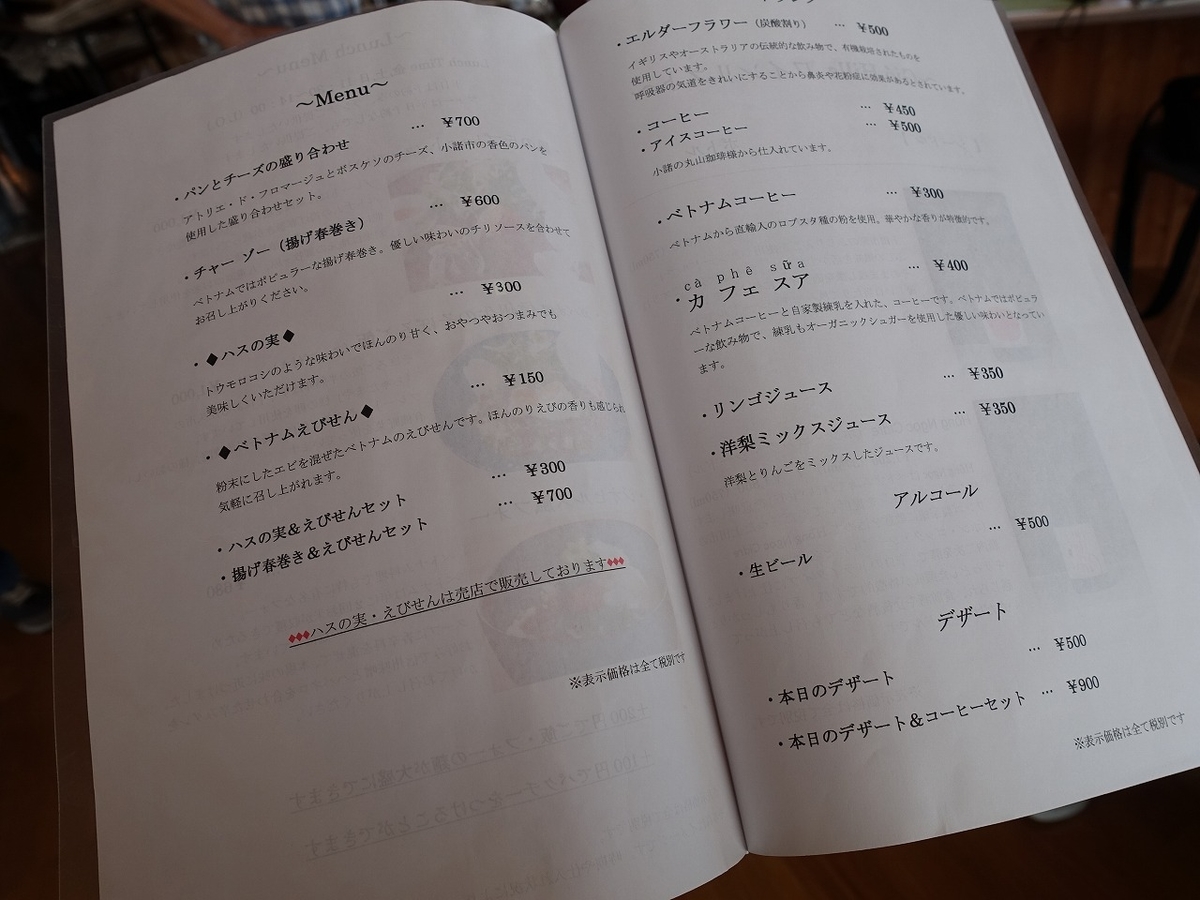 ～Menu～
・パンとチーズの盛り合わせ … ￥700
アトリエ・ド・フロマージュとボスケソのチーズ、小諸市の香色のパンを
使用した盛り合わせセット。
・チャー ゾー（揚げ春巻き） … ￥600
ベトナムではポピュラーな揚げ春巻き。優しい味わいのチリソースを合わせて
お召し上がりください。
・◆ハスの実◆ … ￥300
トウモロコシのような味わいでほんのり甘く、おやつやおつまみでも
美味しくいただけます。
・◆ベトナムえびせん◆ … ￥150
粉末にしたエビを混ぜたベトナムのえびせんです。ほんのりえびの香りも感じられ
気軽に召し上がれます。
・ハスの実＆えびせんセット … ￥300
・揚げ春巻き＆えびせんセット … ￥700
♦♦♦ハスの実・えびせんは売店で販売しております♦♦♦
※表示価格は全て税別です
・エルダーフラワー（炭酸割り） … ￥500
イギリスやオーストラリアの伝統的な飲み物で、有機栽培されたものを
使用しています。
呼吸器の気道をきれいにすることから鼻炎や花粉症に効果があるとされています。
・コーヒー … ￥450
・アイスコーヒー … ￥500
小諸の丸山珈琲様から仕入れています。
・ベトナムコーヒー … ￥300
ベトナムから直輸入のロブスタ種の粉を使用、華やかな香りが特徴的です。
cà phê sữa
・カ フェ スア … ￥400
ベトナムコーヒーと自家製練乳を入れた、コーヒーです。ベトナムではポピュラ
ーな飲み物で、練乳もオーガニックシュガーを使用した優しい味わいとなってい
ます。
・リンゴジュース … ￥350
・洋梨ミックスジュース … ￥350
洋梨とりんごをミックスしたジュースです。
アルコール
・生ビール … ￥500
デザート
・本日のデザート … ￥500
・本日のデザート＆コーヒーセット … ￥900
※表示価格は全て税別です